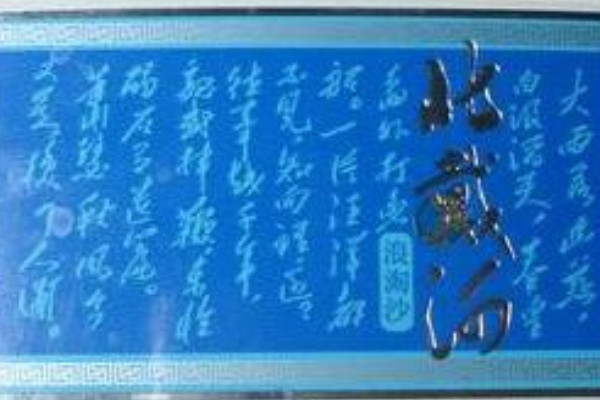 大雨落幽燕，
白浪滔天，秦皇
北戴河
岛外打鱼
浪淘沙
船。一片汪洋都
不见，知向谁边。
往事越千年，
魏武挥鞭，东临
碣石有遗篇。
萧瑟秋风今
又是，换了人间。